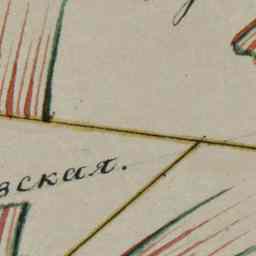 вская.